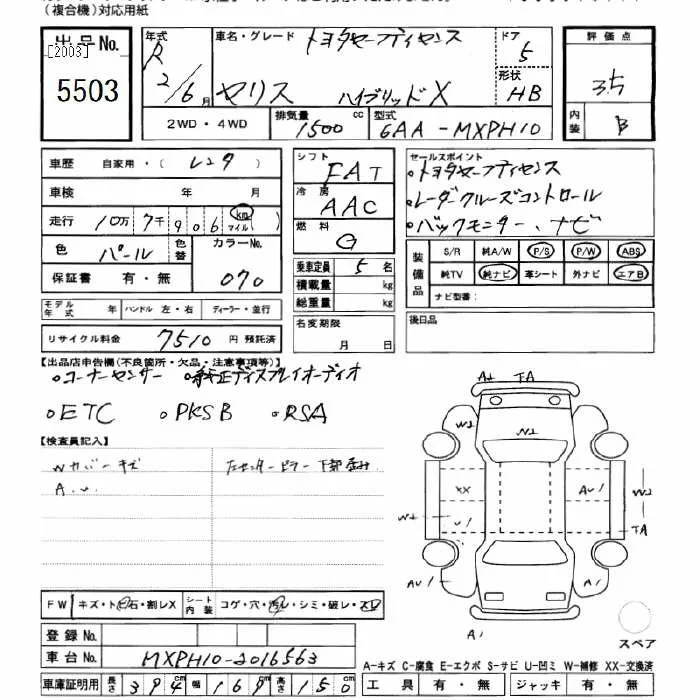 (複合機)対応用紙
出品No.
[2003]
5503
年式 R 2/6月
車名・グレード トヨタセーフティセンス
ヤリス ハイブリッドX
ドア 5
形状 HB
評価点
3.5
内装 B
2WD・4WD
排気量 1500 cc
型式 6AA-MXPH10
車歴 自家用・(レンタ)
車検 年 月
走行 10万7千906 km マイル ( )
色 パール 色替 カラーNo. 070
保証書 有・無
モデル年式 年 ハンドル 左・右 ディーラー・並行
リサイクル料金 7510 円 預託済
シフト FAT
冷房 AAC
燃料 G
乗車定員 5 名
積載量 kg
総重量 kg
名変期限
月 日
セールスポイント
・トヨタセーフティセンス
・レーダークルーズコントロール
・バックモニター、ナビ
装備品
S/R 純A/W P/S P/W ABS
純TV 純ナビ 革シート 外ナビ エアB
ナビ型番:
後日品
【出品店申告欄(不良箇所・欠品・注意事項等)】
・コーナーセンサー ・純正ディスプレイオーディオ
・ETC ・PKSB ・RSA
【検査員記入】
Wカバーキズ
A.U.
左センターピラー下部歪み
A1 TA
W1
W2
XX
U1
AU1
W2
W2
TA
AU1
AU1
A1
スペア
FW キズ・トビ石・割レX
シート内装 コゲ・穴・汚レ・シミ・破レ・スレ
登録No.
車台No. MXPH10-2016563
A-キズ C-腐食 E-エクボ S-サビ U-凹ミ W-補修 XX-交換済
車庫証明用 長さ 394cm 幅 169cm 高さ 150cm
工具 有・無 ジャッキ 有・無